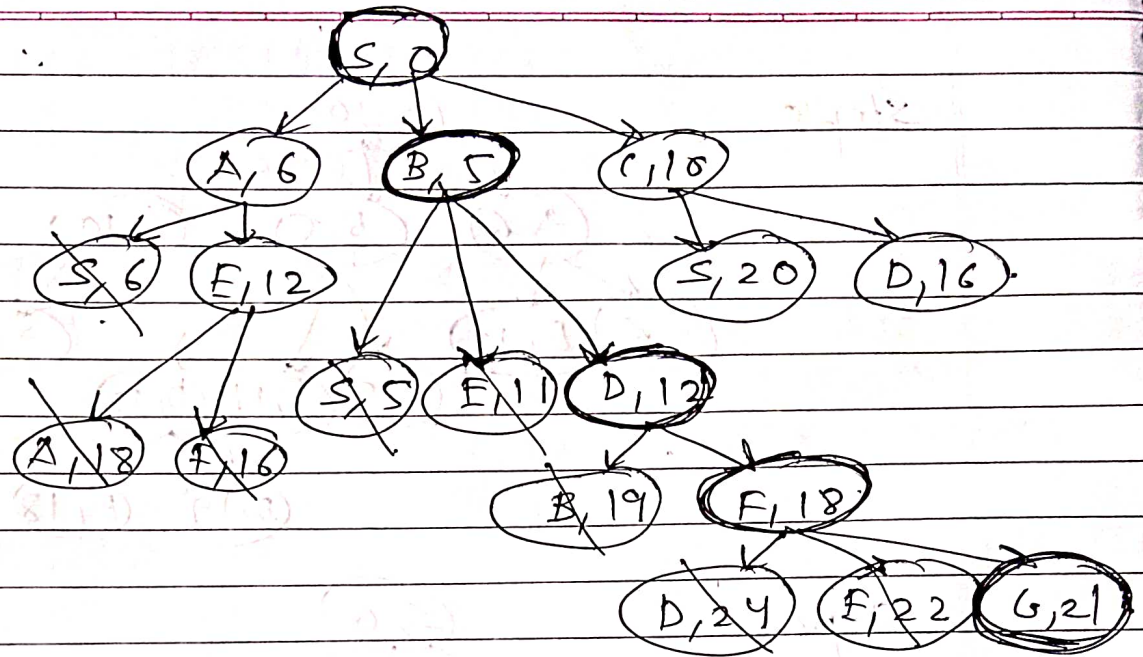 S, 0
A, 6
B, 5
C, 10
S, 6
E, 12
S, 20
D, 16
S, 5
E, 11
D, 12
A, 18
F, 16
B, 19
F, 18
D, 24
E, 22
G, 21